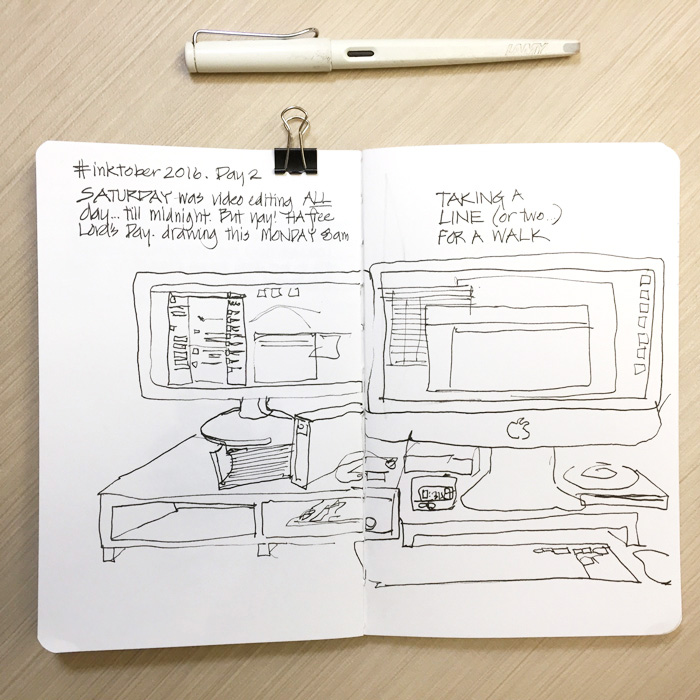 LAMY
#inktober 2016. Day 2
SATURDAY was video editing ALL
day... till midnight. But yay! HATfree
Lord's Day. drawing this MONDAY 8am
TAKING A
LINE (or two..)
FOR A WALK